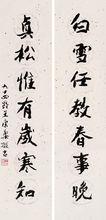 白雪任教春事晚
貞松惟有歲寒知